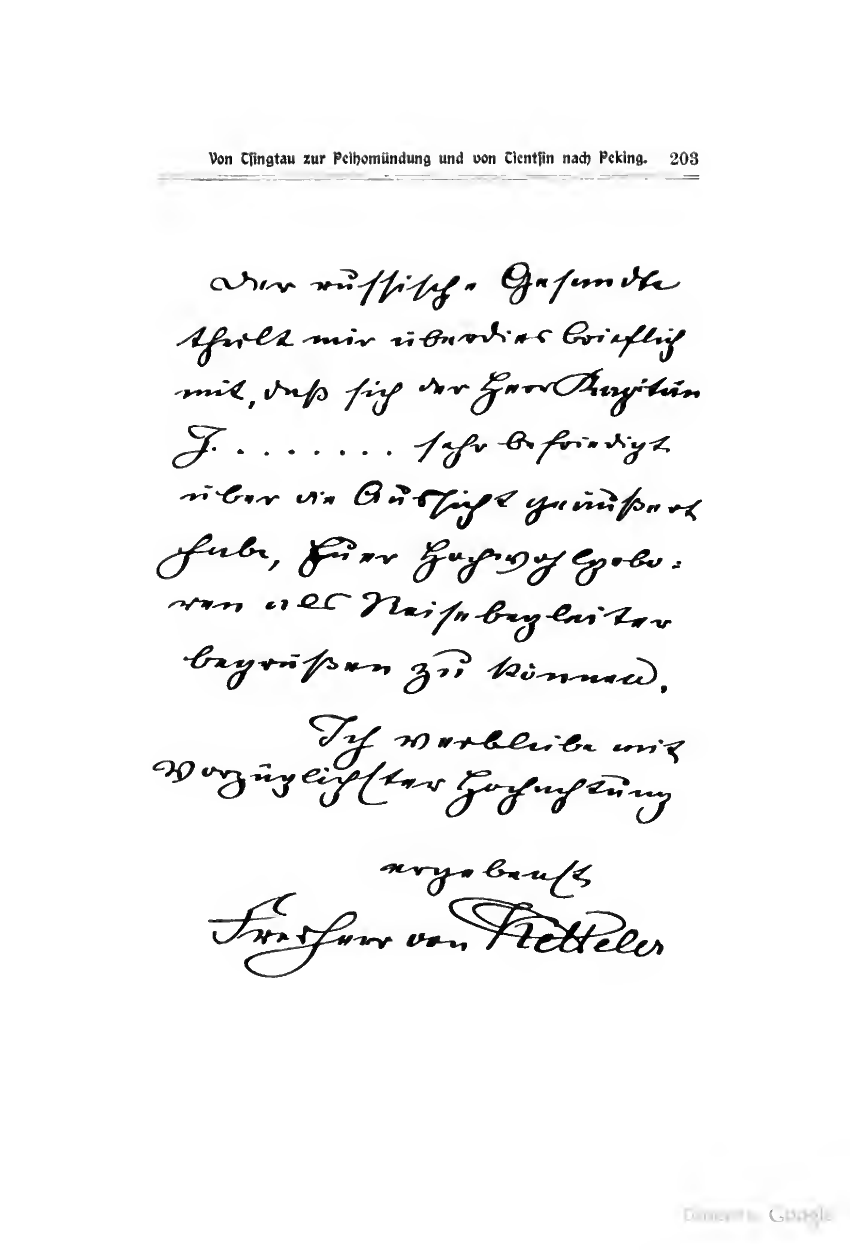 Von Tsingtau zur Peihomündung und von Tientsin nach Peking. 203
Der russische Gesandte
theilt mir überdies brieflich
mit, daß sich der Herr Kapitän
J. . . . . . . . sehr befriedigt
über die Aussicht geäußert
habe, Euer Hochwohlgebo:
ren als Reisebegleiter
begrüßen zu können.
Ich verbleibe mit
vorzüglichster Hochachtung
ergebenst
Freiherr von Ketteler
Google